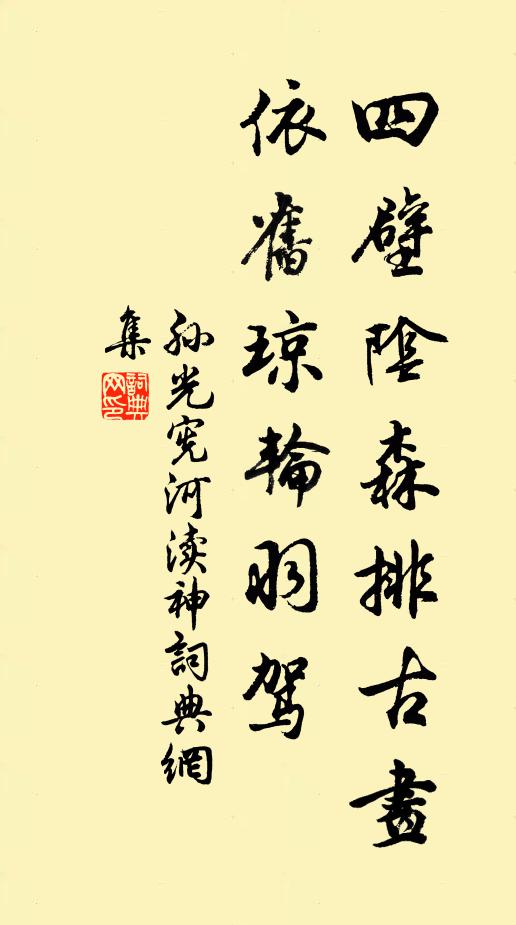 四壁陰森排古畫
依舊琼輪羽駕
孙光宪河渎神詞典網
集
詞典网印